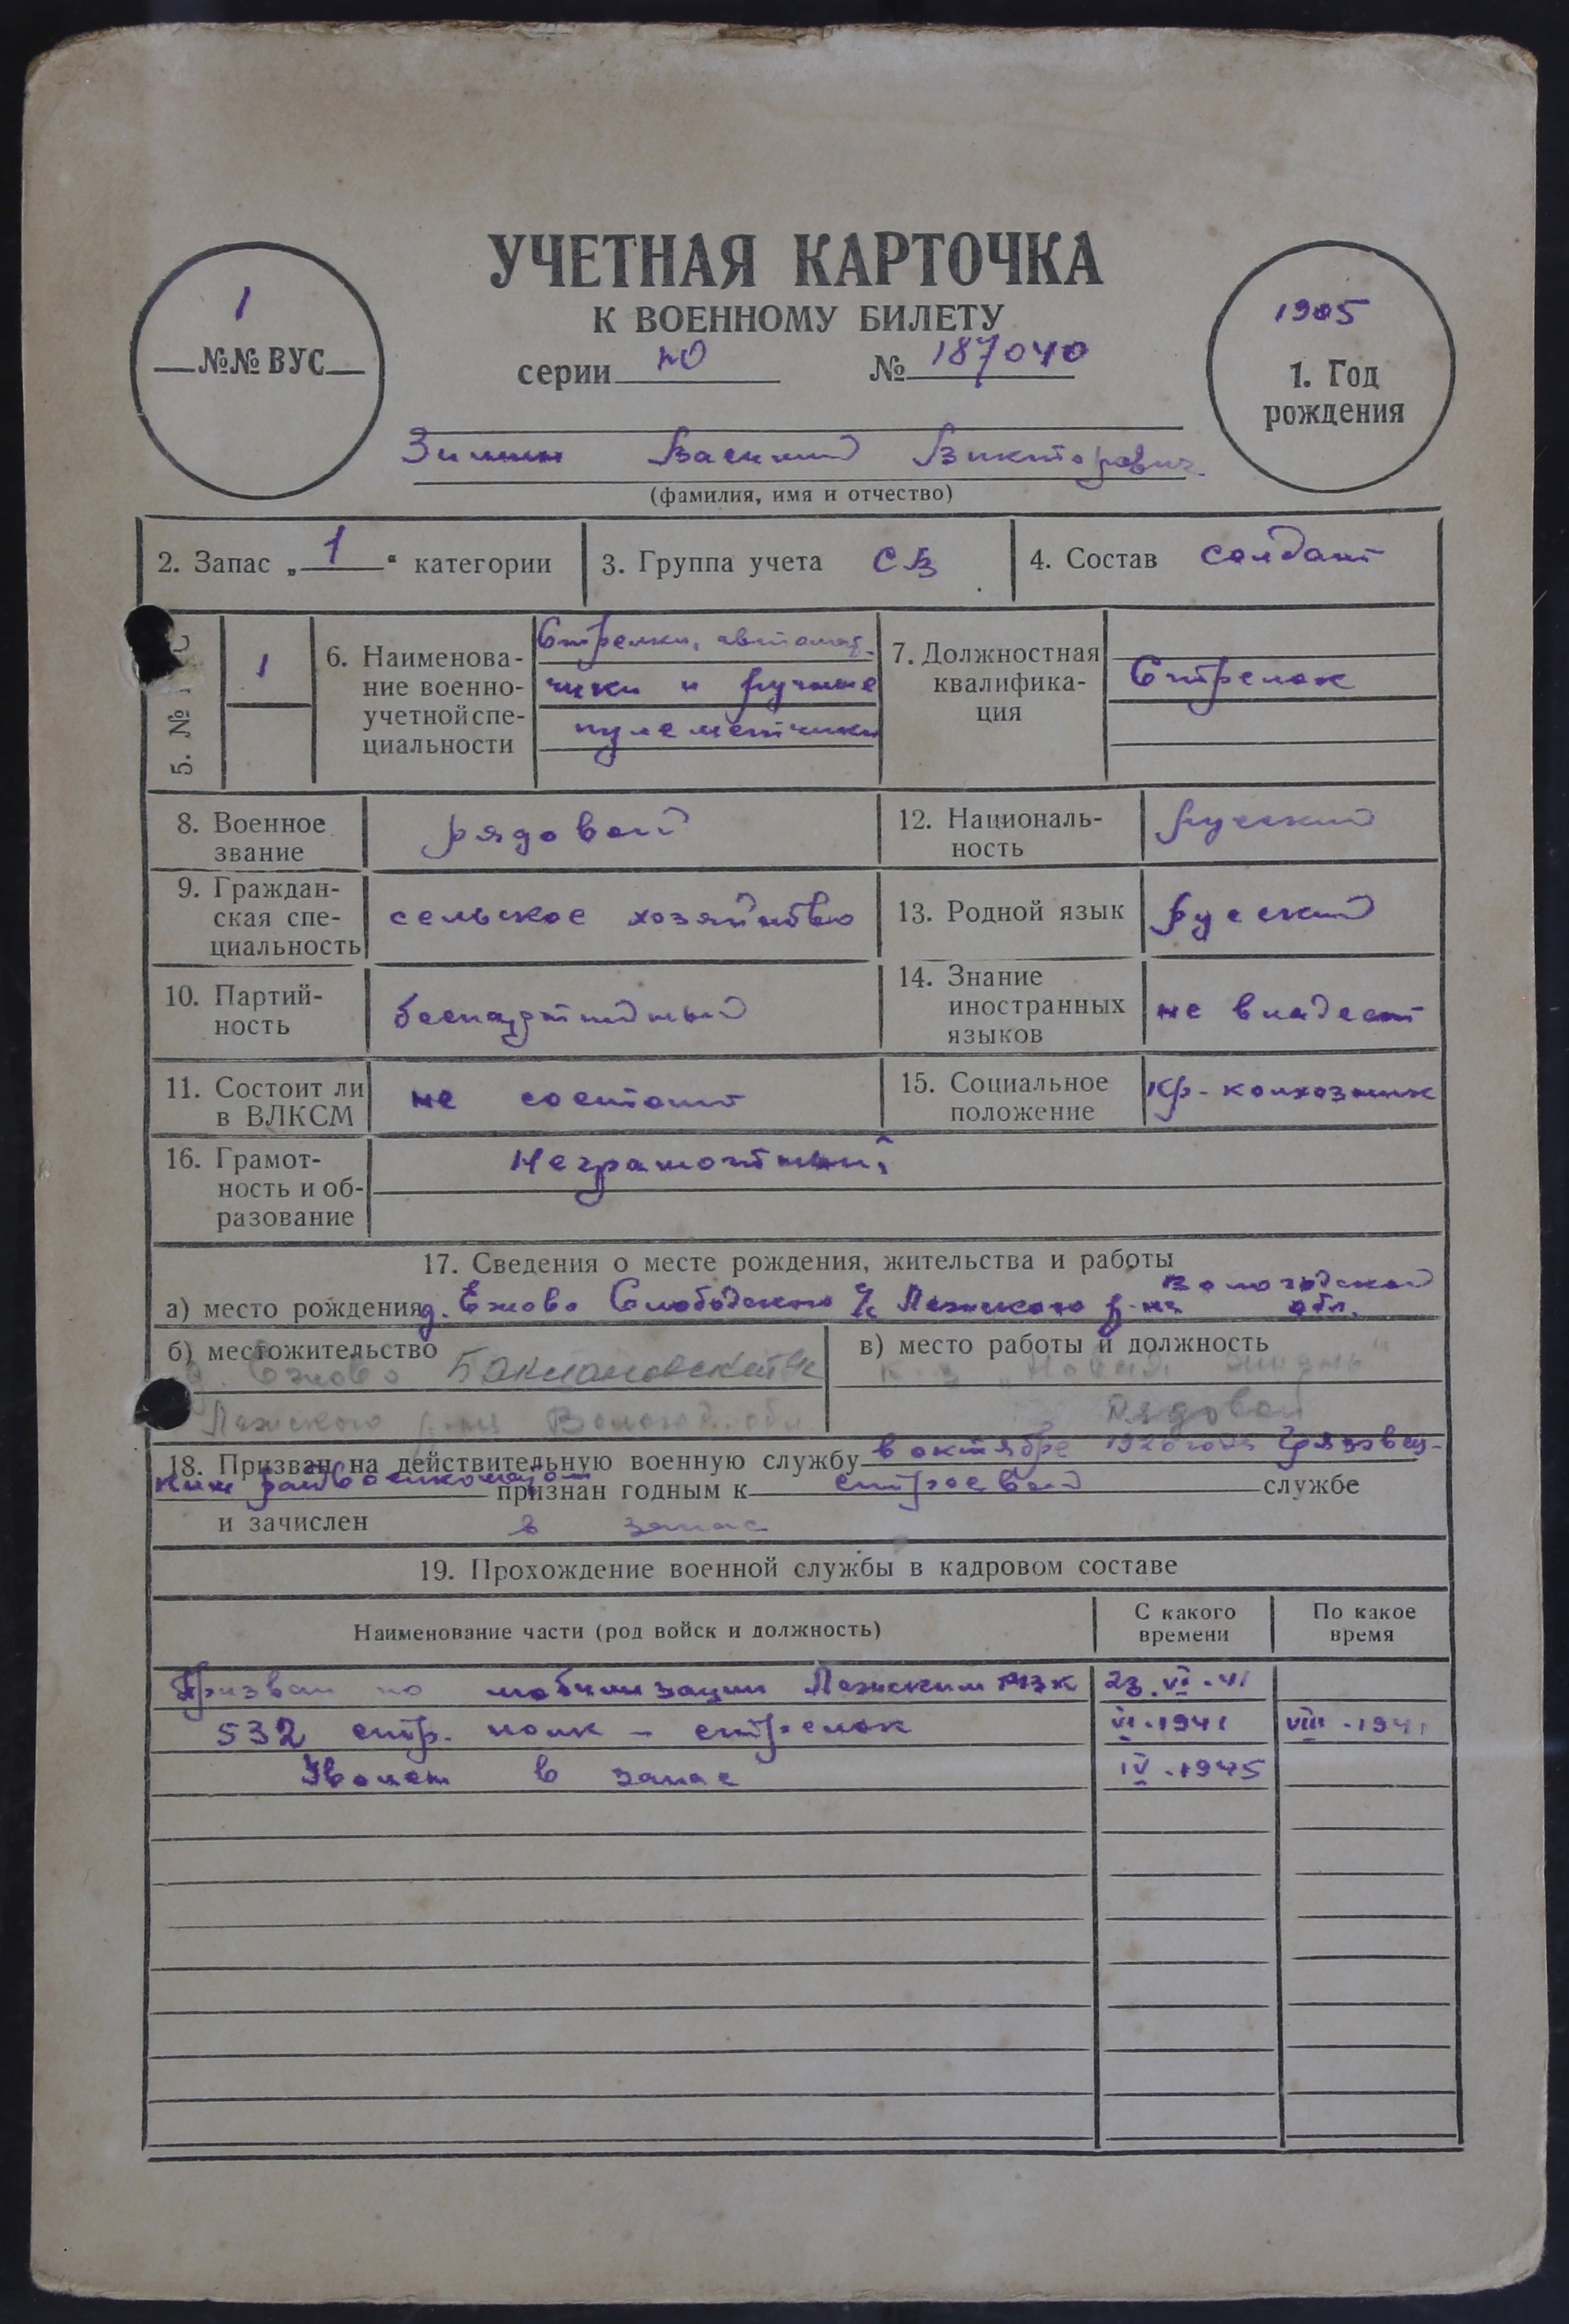 УЧЕТНАЯ КАРТОЧКА
К ВОЕННОМУ БИЛЕТУ
1
№№ ВУС
серии НО № 187040
1905
1. Год
рождения
Зимин Василий Викторович
(фамилия, имя и отчество)
2. Запас „1“ категории
3. Группа учета СВ
4. Состав солдат
5. №
1
6. Наименова-
ние военно-
учетной спе-
циальности
Стрелки, автомат-
чики и ручные
пулеметчики
7. Должностная
квалифика-
ция
Стрелок
8. Военное
звание
рядовой
12. Националь-
ность
русский
9. Граждан-
ская спе-
циальность
сельское хозяйство
13. Родной язык
русский
10. Партий-
ность
беспартийный
14. Знание
иностранных
языков
не владеет
11. Состоит ли
в ВЛКСМ
не состоит
15. Социальное
положение
кр-колхозник
16. Грамот-
ность и об-
разование
Неграмотный
17. Сведения о месте рождения, жительства и работы
а) место рождения д. Ежово Слободского с/с Лежского р-на Вологодской обл.
б) местожительство
д. Ежово Баклановский с/с
Лежского р-на Вологод. обл.
в) место работы и должность
к-з „Новая жизнь“
рядовой
18. Призван на действительную военную службу в октябре года Грязовец-
ким райвоенкоматом признан годным к строевой службе
и зачислен в запас
19. Прохождение военной службы в кадровом составе
Наименование части (род войск и должность)
С какого
времени
По какое
время
Призван по мобилизации Лежским РВК 23.VI.41
532 стр. полк – стрелок VI.1941 VIII.1941
Уволен в запас IV.1945